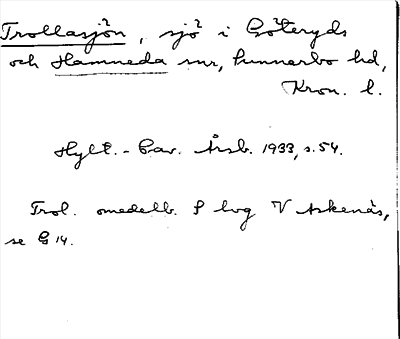 Trollasjön, sjö i Göteryds
och Hamneda snr, Sunnerbo hd,
Kron. l.
Hylt.-Cav. Årsb. 1933, s. 54.
Trol. omedelb. S hvg V Askenäs,
se G 14.